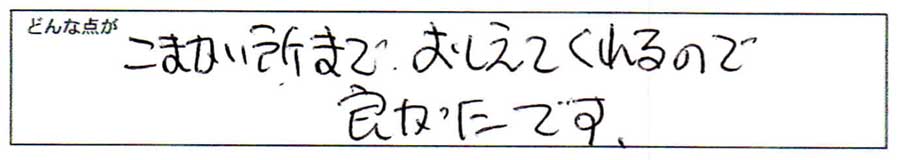 どんな点が
こまかい所まで、おしえてくれるので
良かったです。